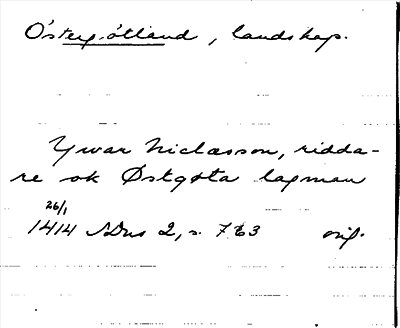 Östergötland, landskap.
Ywar Niclæsson, ridda-
re ok Østgøta lagman
26/1
1414 SDns 2, s. 763 orig.